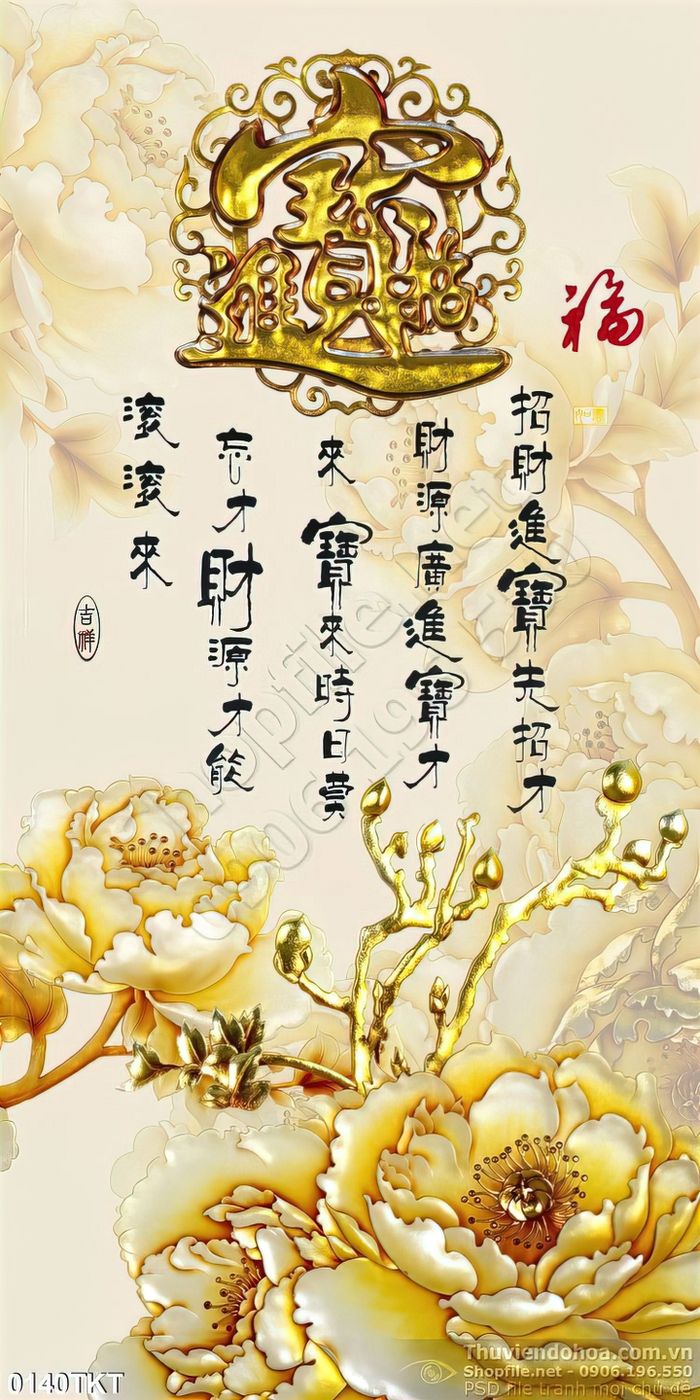 招財進寶
福
招財進寶先招才
財源廣進寶才
來寶來時日莫
忘才財源才能
滾滾來
吉祥
Shopfile.net
0906.196.550
0140TKT
Thuviendohoa.com.vn
Shopfile.net - 0906.196.550
PSD file tranh mọi chủ đề